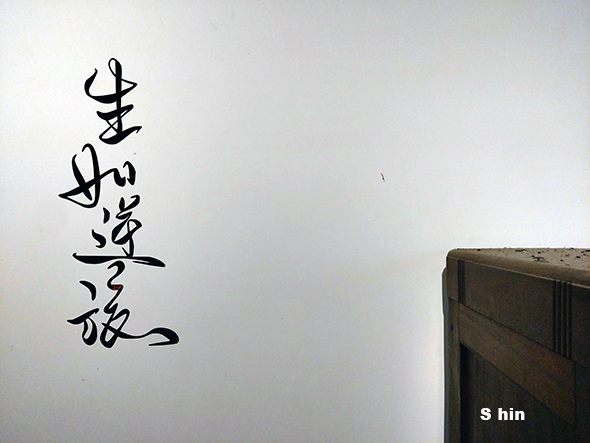 生如逆旅
S hin